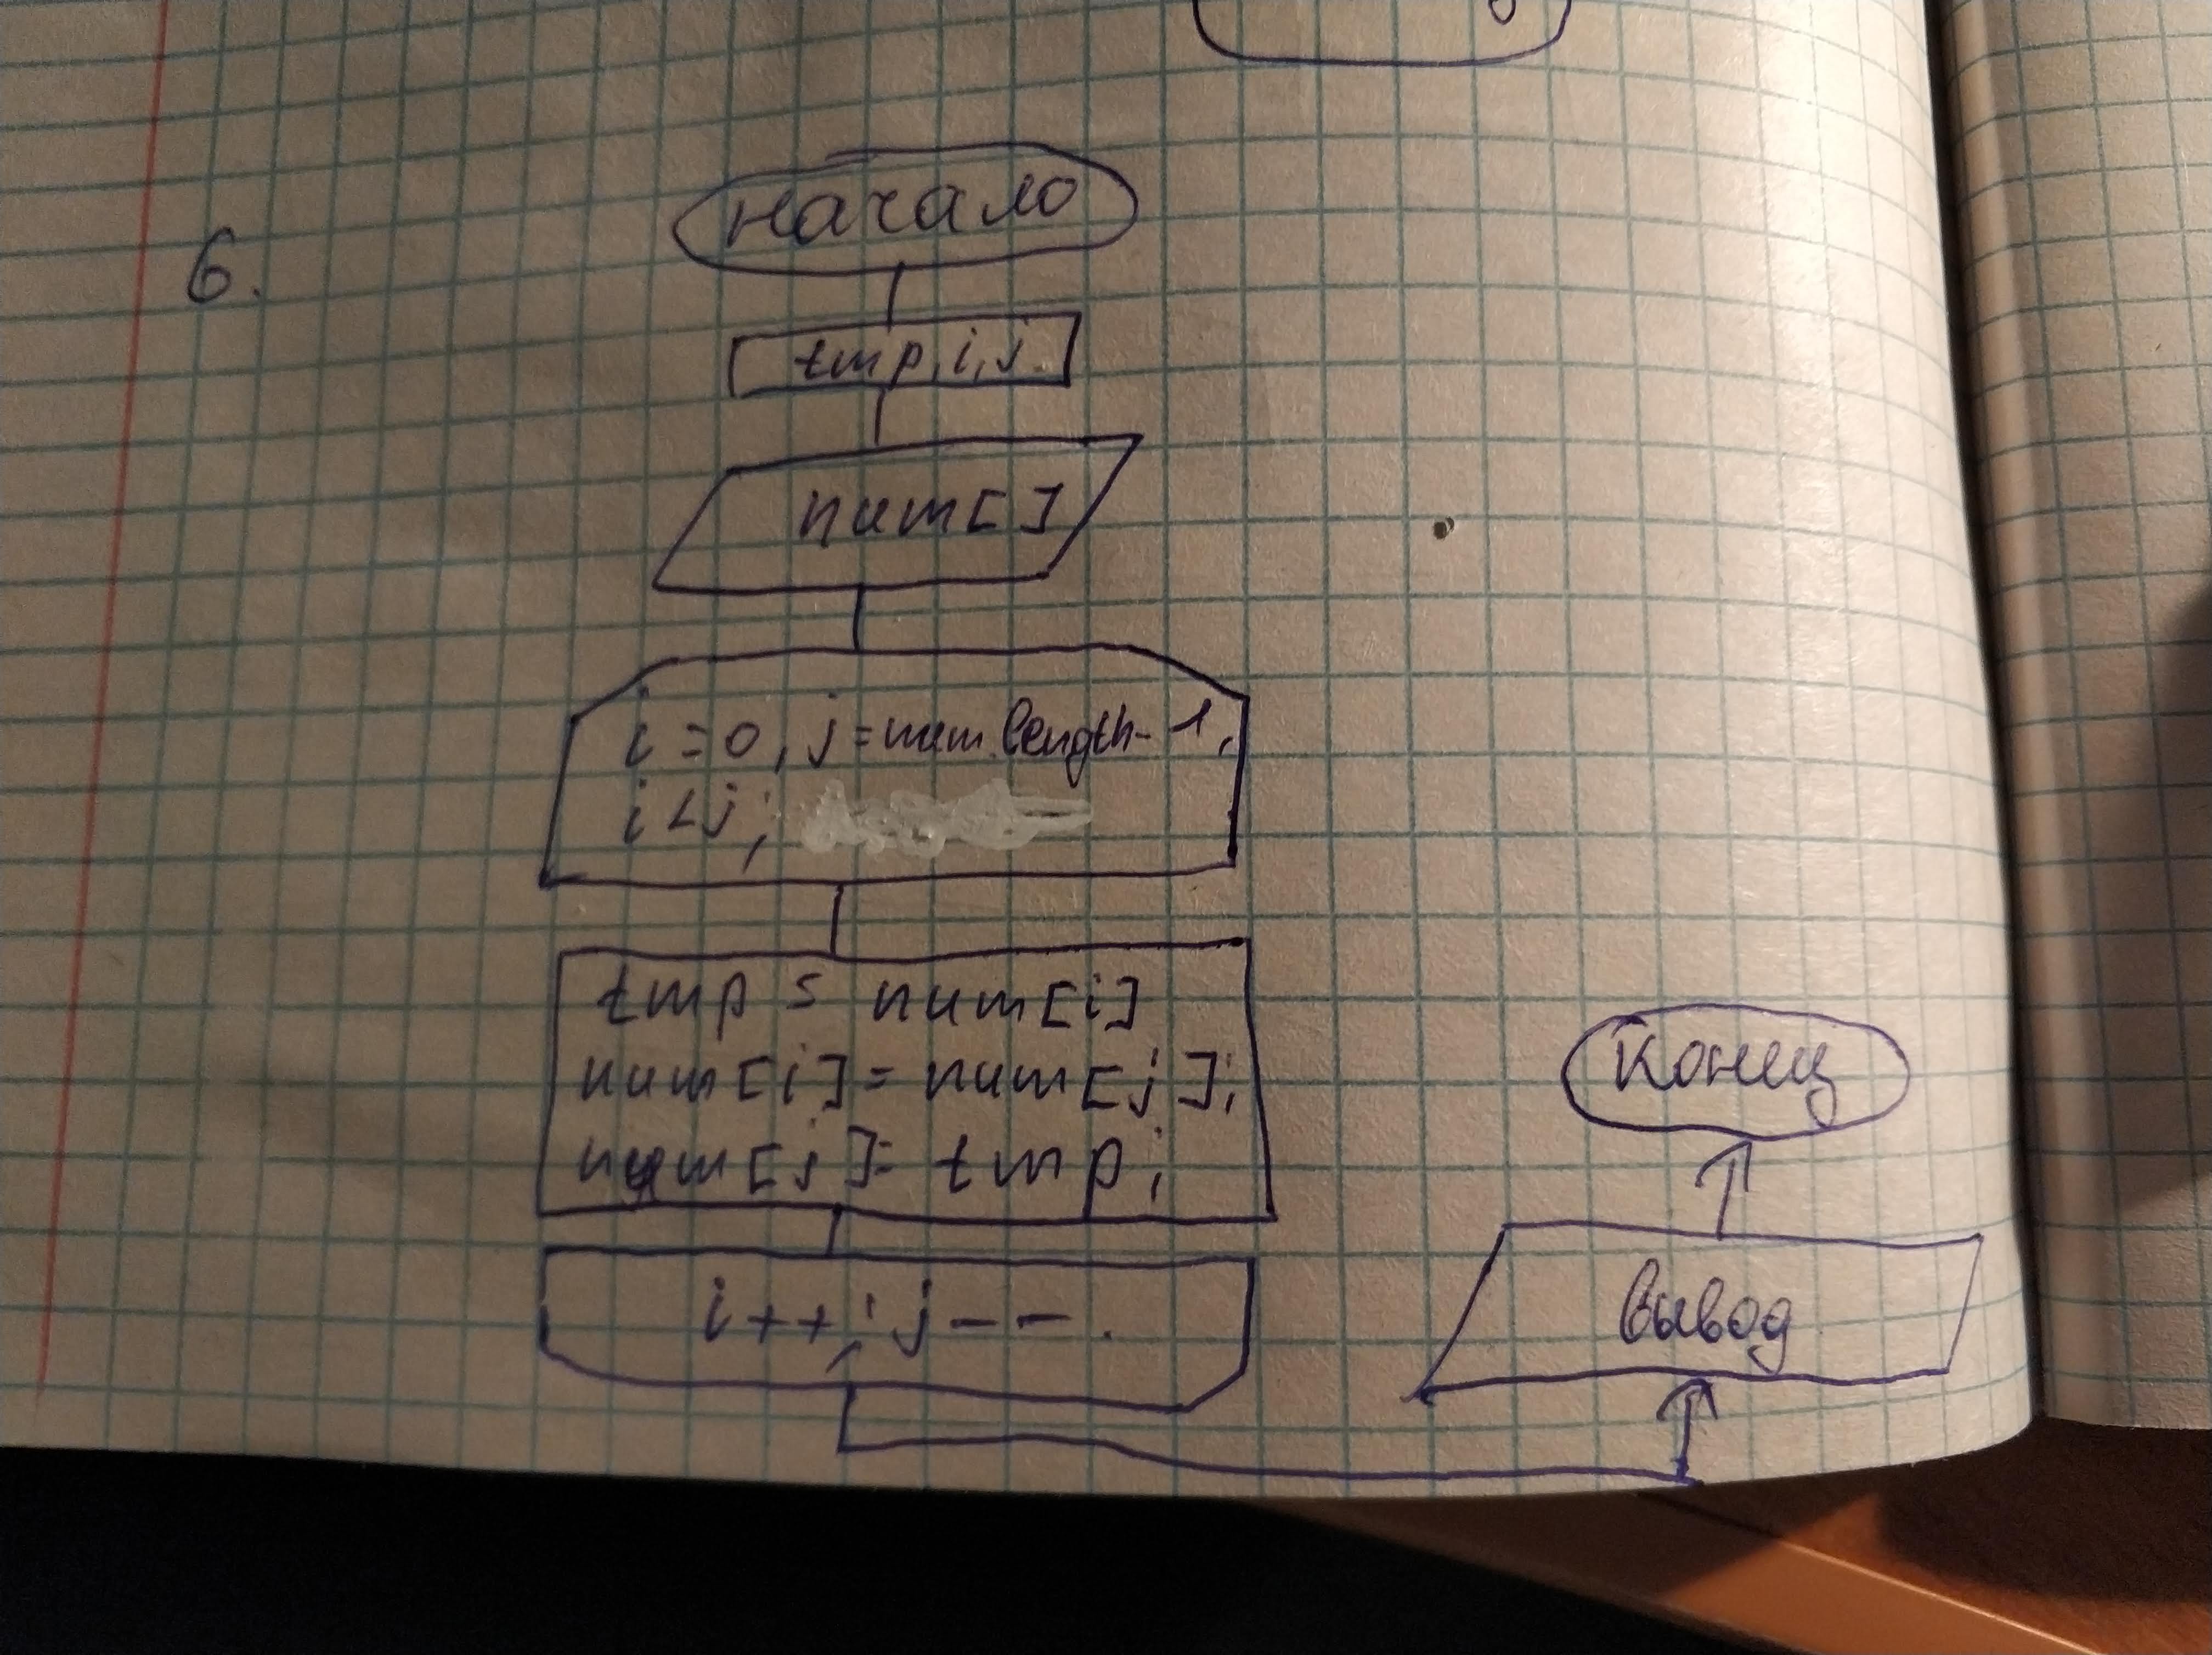 6.
начало
tmp, i, j.
num[]
i = 0, j = num.length - 1,
i < j;
tmp = num[i]
num[i] = num[j];
num[j] = tmp;
i++; j--.
вывод
конец